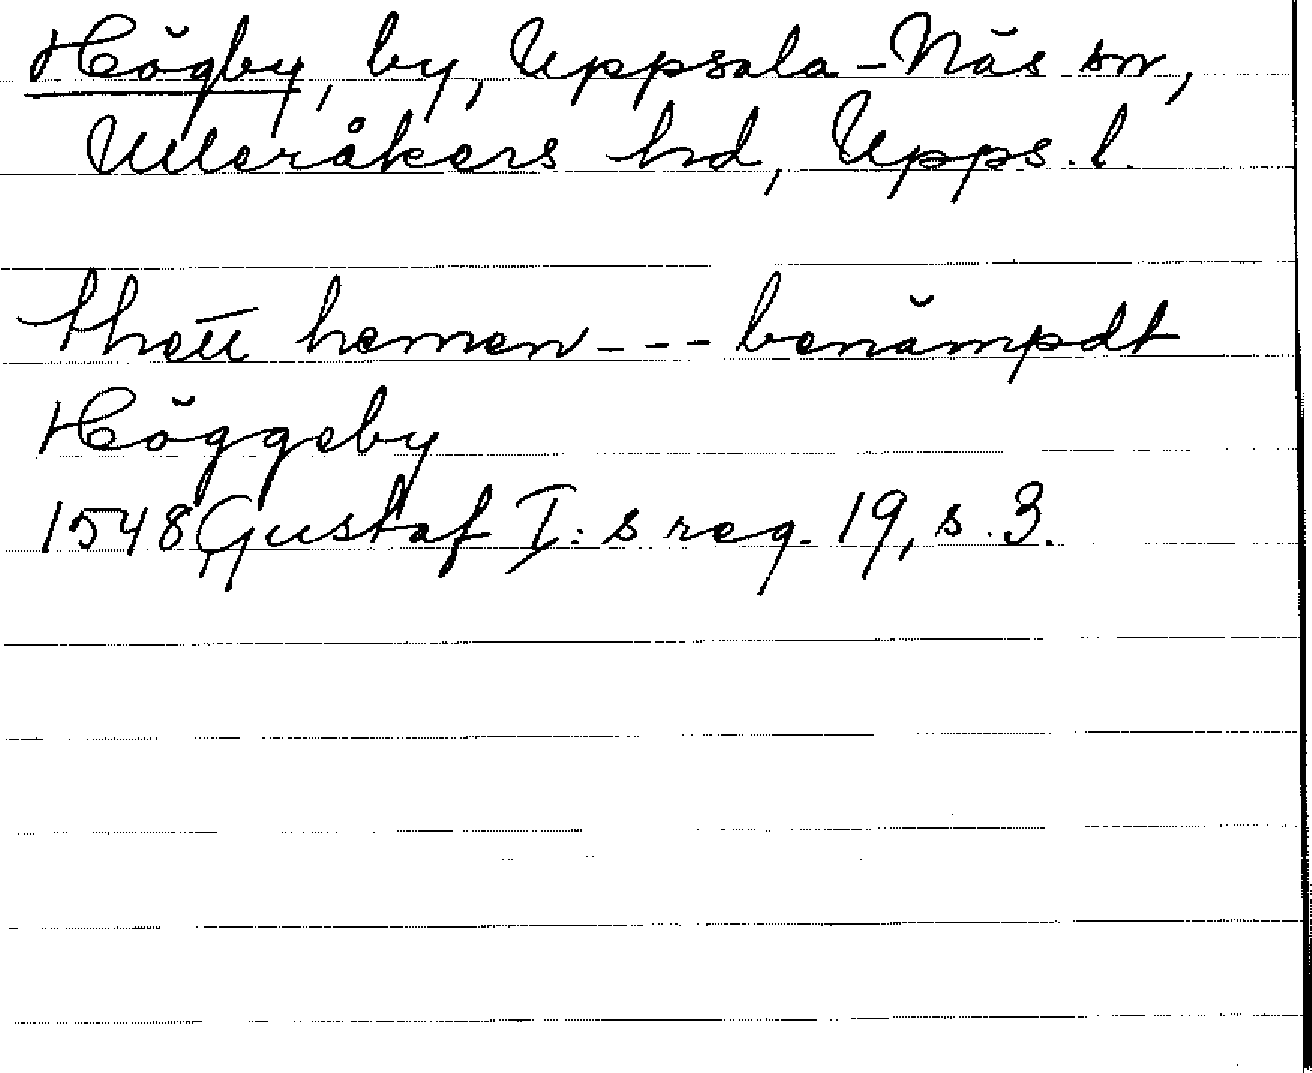 Högby, by, Uppsala-Näs sn,
Ulleråkers hd, Upps. l.
thett hemen --- benämpdt
Höggeby
1548 Gustaf I:s reg. 19, s. 3.